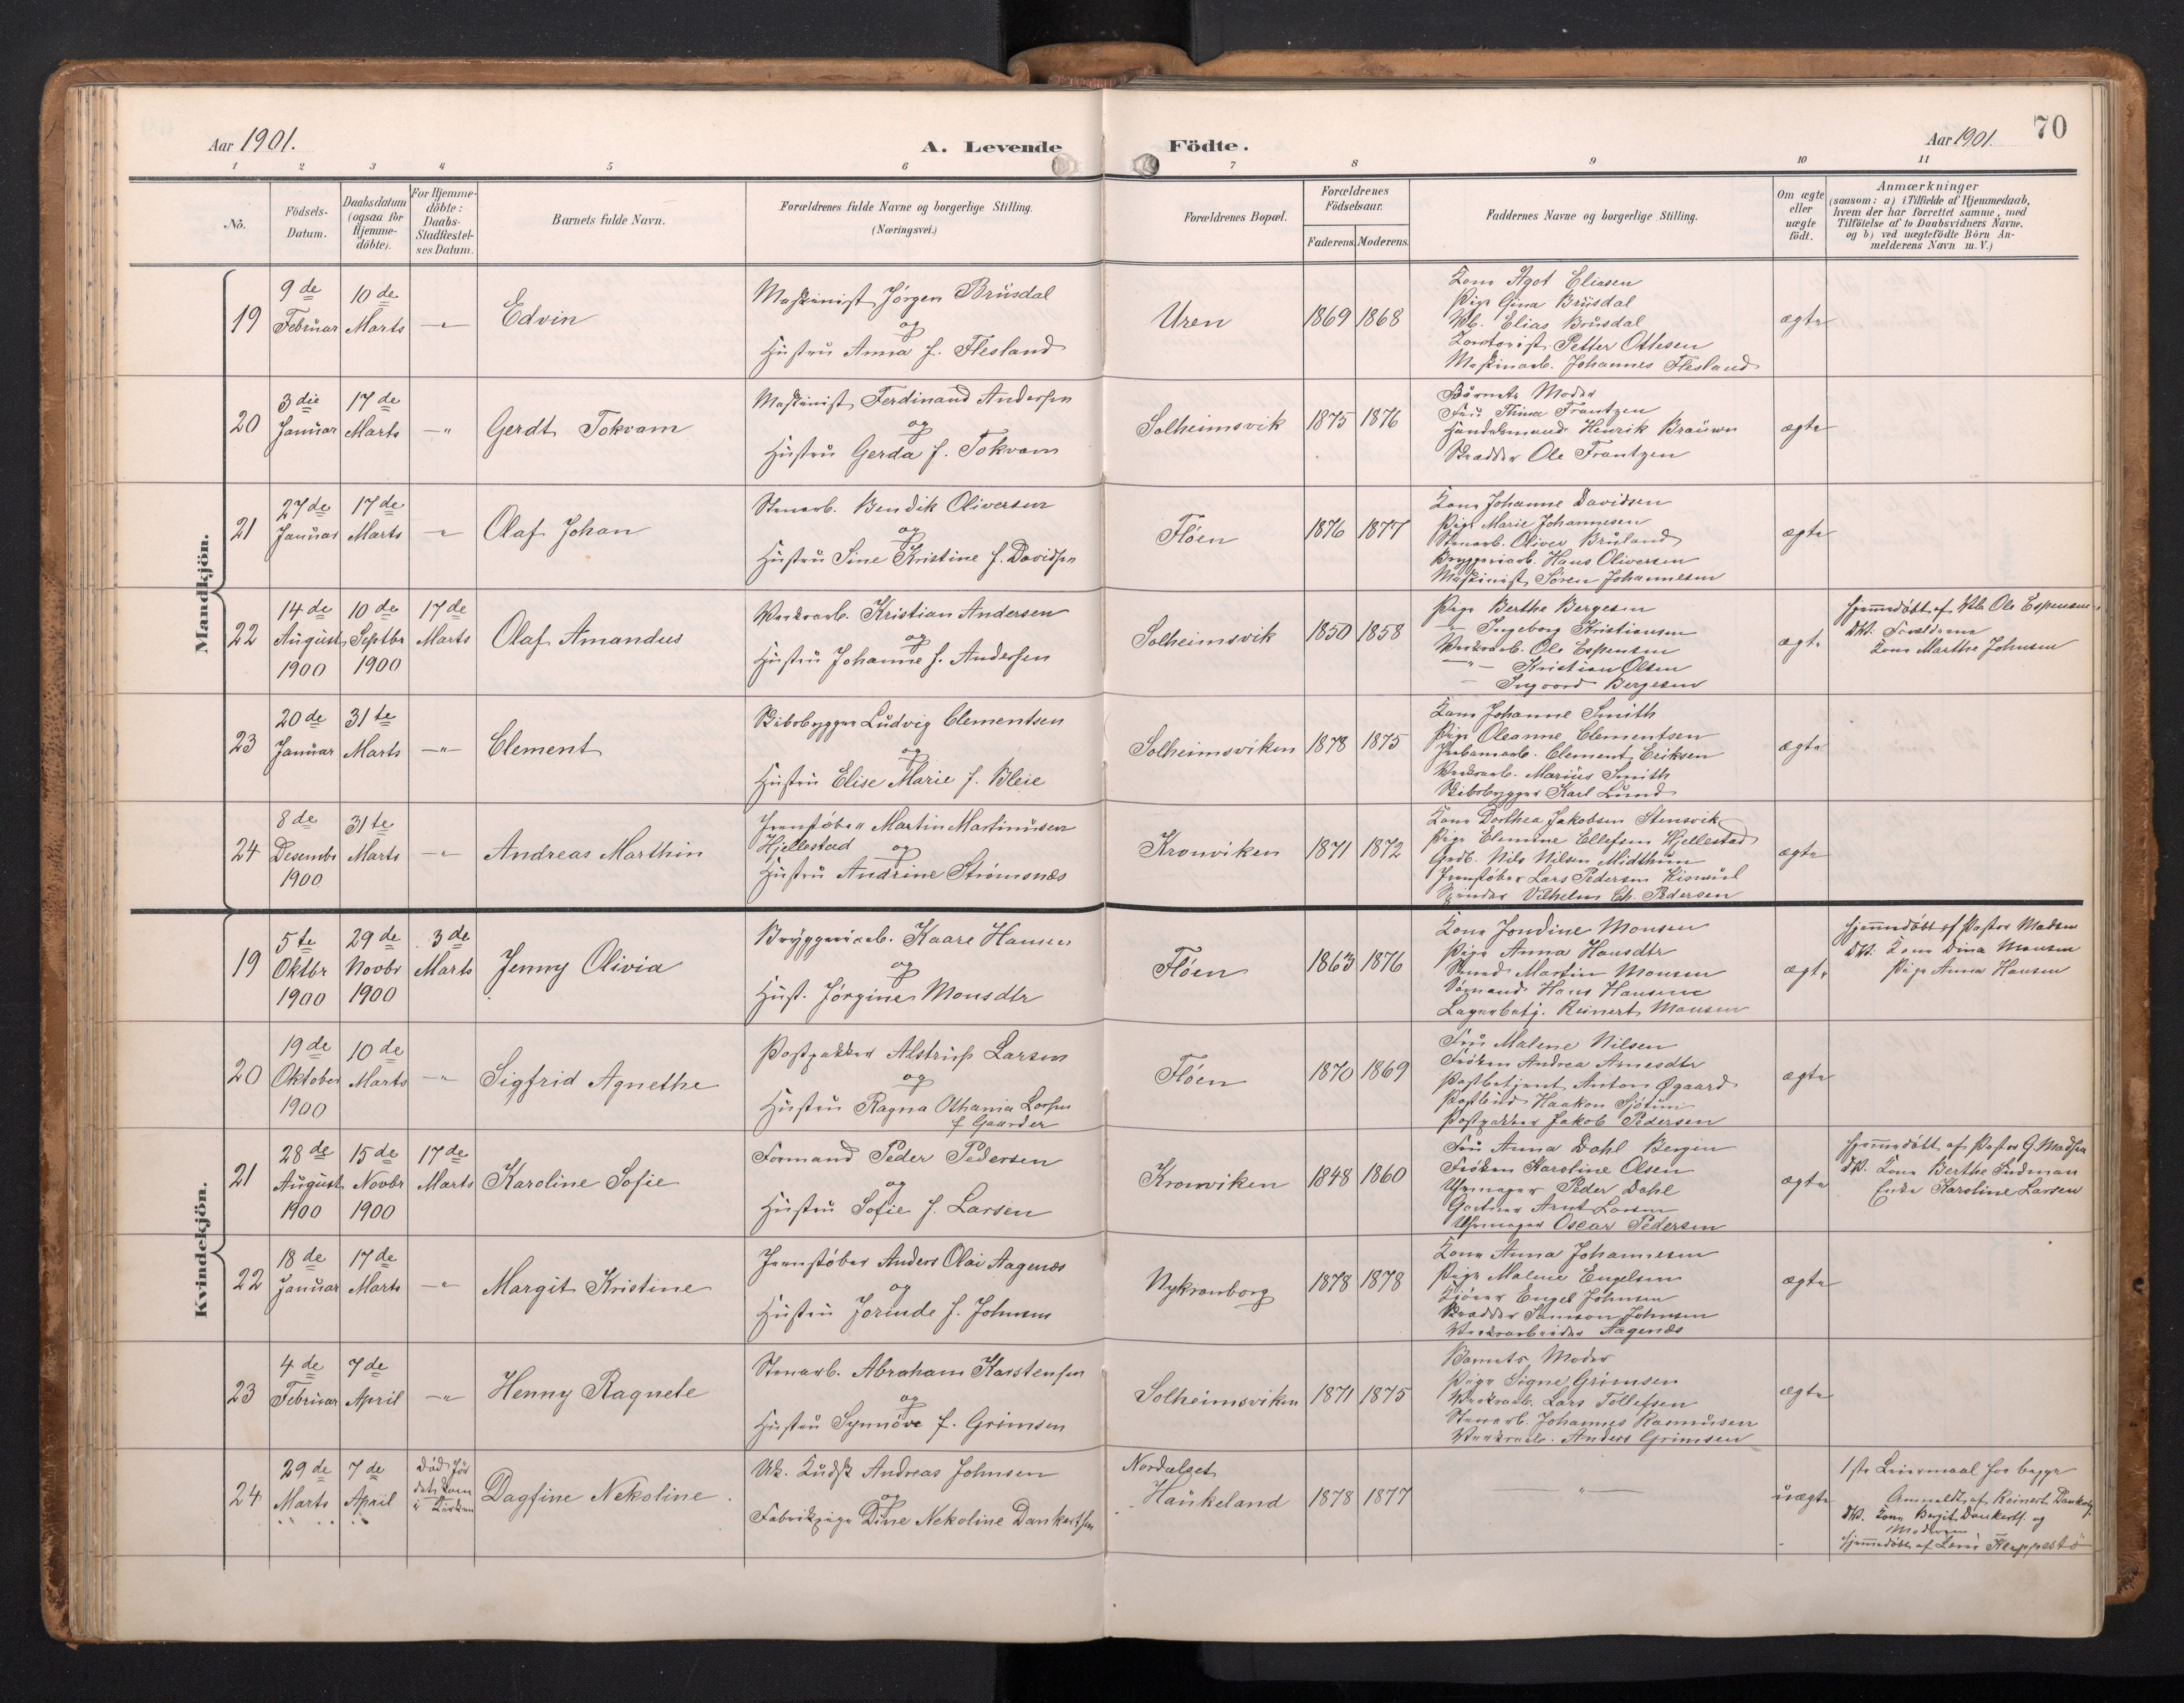 Aar 1901.
A. Levende
Födte.
Aar 1901.
70
1 2 3 4 5 6 7 8 9 10 11
No.
Födsels-
Datum.
Daabsdatum
(ogsaa för
Hjemme-
döbte).
For Hjemme-
döbte:
Daabs-
Stadfæstel-
ses Datum.
Barnets fulde Navn.
Forældrenes fulde Navne og borgerlige Stilling.
(Næringsvei.)
Forældrenes Bopæl.
Forældrenes
Födselsaar.
Faderens. Moderens.
Faddernes Navne og borgerlige Stilling.
Om ægte
eller
uægte
födt.
Anmærkninger
(saasom: a) i Tilfælde af Hjemmedaab,
hvem der har forrettet samme, med
Tilföielse af to Daabsvidners Navne,
og b) ved uægtefödte Börn An-
melderens Navn m. V.)
Mandkjön.
19
9de
Februar
10de
Marts
Edvin
Maskinist Jörgen Brüsdal
og
Hustru Anna f. Flesland
Uren
1869 1868
Kone Agot Eliasen
Pige Gina Brüsdal
Elias Brüsdal
Petter Othesen
Maskinarb. Johannes Flesland
ægte
20
3die
Januar
17de
Marts
Gerdt Tokvam
Maskinist Ferdinand Andersen
og
Hustru Gerda f. Tokvam
Solheimsvik
1875 1876
Barnets Moder
Fru Thina Frantzen
Handelsmand Henrik Braüwn
Skrædder Ole Frantzen
ægte
21
27de
Januar
17de
Marts
Olaf Johan
Stenarb. Bendik Oliversen
og
Hustru Sine Kristine f. Davidsen
Flöen
1876 1877
Kone Johanne Davidsen
Pige Marie Johannesen
Stenarb. Oliver Brüland
Bryggeriarb. Hans Oliversen
Maskinist Sören Johannesen
ægte
22
14de
August
1900
10de
Septbr
1900
17de
Marts
Olaf Amandus
Værksarb. Kristian Andersen
og
Hustru Johanne f. Andersen
Solheimsvik
1850 1858
Pige Berthe Bergesen
" Ingeborg Kristiansen
Værksarb. Ole Espensen
" Kristian Olsen
" Ingvard Bergesen
ægte
Hjemmedöbt af Ole Espensen
Dv. Forældrene
Kone Marthe Johnsen
23
20de
Januar
31te
Marts
Clement
Skibsbygger Ludvig Clementsen
og
Hustru Elise Marie f. Bleie
Solheimsviken
1878 1875
Kone Johanne Smith
Pige Oleanne Clementsen
Clement Eriksen
Værksarb. Marius Smith
Skibsbygger Karl Lund
ægte
24
8de
Desembr
1900
31te
Marts
Andreas Marthin
Jernstöber Martin Martinusen
Hjellestad og
Hustru Andrine Strömsnæs
Kronviken
1871 1872
Kone Dorthea Jakobsen Stensvik
Pige Elenine Ellefsen Hjellestad
Grdb. Nils Nilsen Midthun
Jernstöber Lars Pedersen
Vilhelm Ch. Pedersen
ægte
Kvindekjön.
19
5te
Oktbr
1900
29de
Novbr
1900
3de
Marts
Jenny Olivia
Bryggeriarb. Kaare Hansen
og
Hust. Jörgine Monsdtr
Flöen
1863 1876
Kone Jondine Monsen
Pige Anna Hansdtr
Martin Monsen
Sömand Hans Hansen
Lagerbetj. Reinert Monsen
ægte
Hjemmedöbt af Pastor Madsen
Dv. Kone Dina Monsen
Pige Anna Hansen
20
19de
Oktober
1900
10de
Marts
Sigfrid Agnethe
Postpakker Alstrup Larsen
og
Hustru Ragna Othania Larsen
f. Gaarder
Flöen
1870 1869
Fru Malene Nilsen
Fröken Andrea Arnesdtr
Postbetjent Anton Øgaard
Postbud Haakon Sjötun
Postpakker Jakob Pedersen
ægte
21
28de
August
1900
15de
Novbr
1900
17de
Marts
Karoline Sofie
Formand Peder Pedersen
og
Hustru Sofie f. Larsen
Kronviken
1848 1860
Fru Anna Dahl Bergen
Fröken Karoline Olsen
Uhrmager Peder Dahl
Gartner Arnt Larsen
Uhrmager Oscar Pedersen
ægte
Hjemmedöbt af Pastor G. Madsen
Dv. Kone Berthe Sudman
Enke Karoline Larsen
22
18de
Januar
17de
Marts
Margit Kristine
Jernstöber Anders Olai Aagenæs
og
Hustru Jorinde f. Johnsen
Nykronborg
1878 1878
Kone Anna Johannesen
Pige Malene Engelsen
Engel Johnsen
Skrædder Samson Johnsen
Værksarbeider Aagenæs
ægte
23
4de
Februar
7de
April
Henny Ragnete
Stenarb. Abraham Karstensen
og
Hustru Synnöve f. Grimsen
Solheimsviken
1871 1875
Barnets Moder
Pige Signe Grimsen
Værksarb. Lars Tollefsen
Stenarb. Johannes Rasmusen
Værksarb. Anders Grimsen
ægte
24
29de
Marts
7de
April
Död för
det kom
i Kirken
Dagfine Nekoline
Uk. Kudsk Andreas Johnsen
og
Fabrikpige Dine Nekoline Dankertsen
Nordalset
Haukeland
1878 1877
uægte
1ste Leiermaal for begge
Anmeldt af Reinert Dankerts.
Dv. Kone Bergit Dankerts. og
Moderen
Hjemmedöbt af Kleppestö